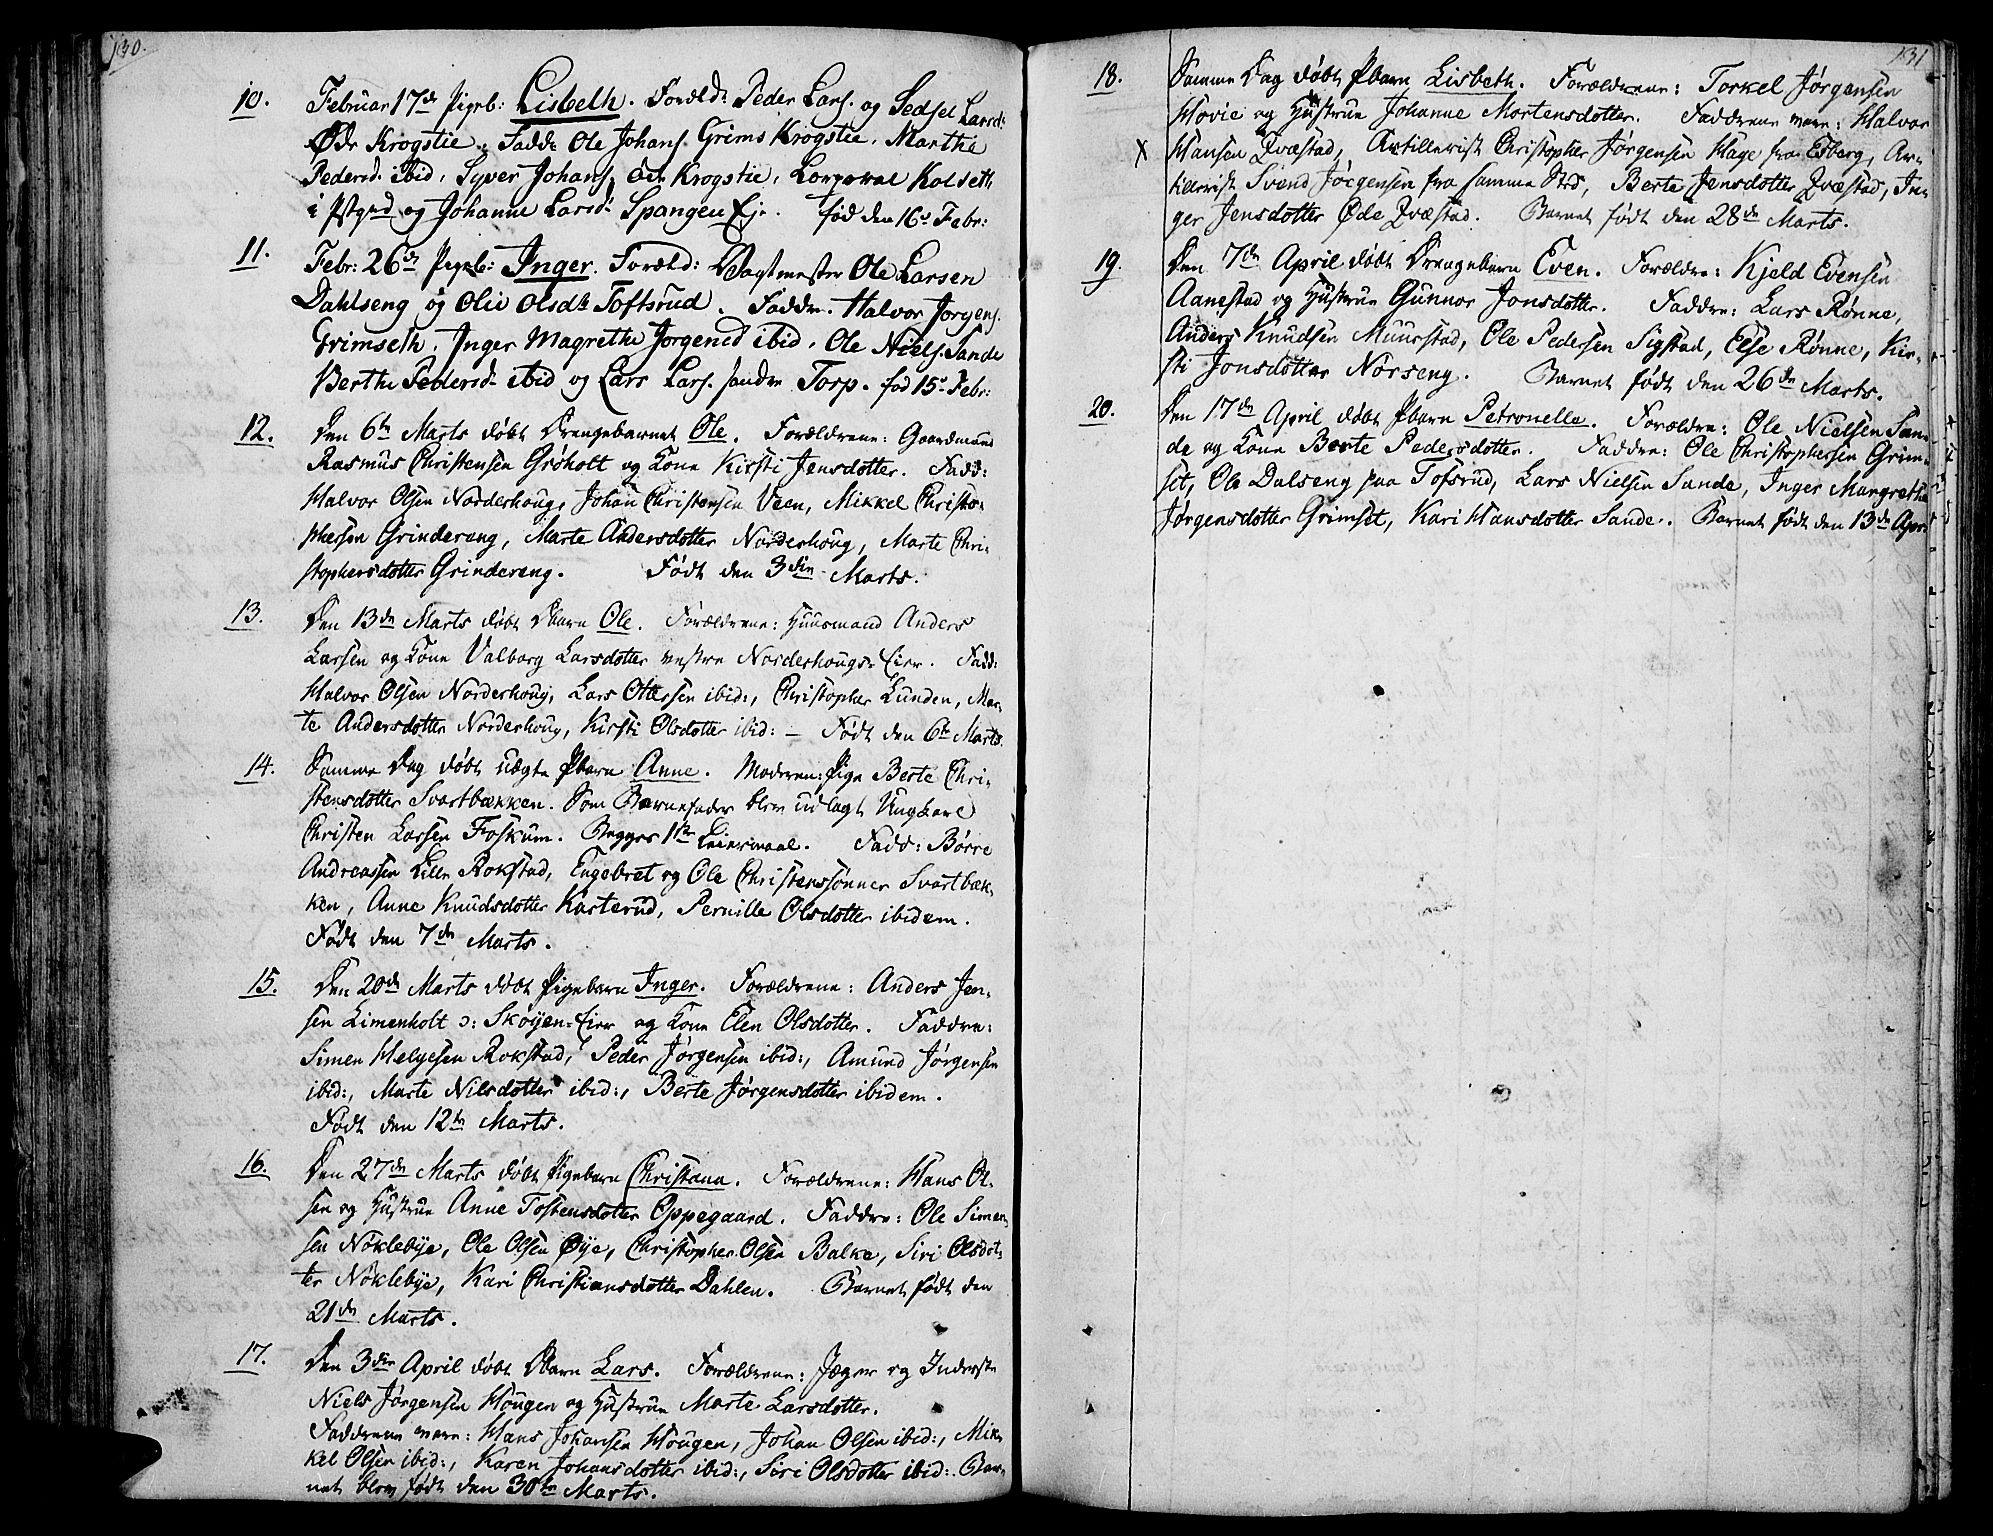 130.
10. Februar 17de Pigeb: Lisbeth. Foreld: Peder Lars. og Sedsel Larsd:
Øde Krogstie. Fadd: Ole Johans. Grims Krogstie, Marthe
Pedersd. ibid, Syver Johans. Øde Krogstie, Corporal Kolseth
i og Johanne Larsd. Spangen Eje. fød den 16de Febr:
11. Febr: 26de Pigeb: Inger. Foreld: Vagtmester Ole Larsen
Dahlseng og Olie Olsdr Toftsrud. Faddr. Halvor Jørgens.
Grimseth, Inger Magrethe Jørgensd ibid, Ole Niels. Sande
Berthe Pedersd. ibid og Lars Lars. søndre Torp. fød 15de Febr:
12. Den 6te Marts døbt Drengebarnet Ole. Forældrene: Gaardmand
Rasmus Christensen Grøholt og Kone Kirsti Jensdotter. Fadd:
Halvor Olsen Norderhoug, Johan Christensen Veen, Mikkel Christo-
phersen Grindereng, Marte Andersdotter Norderhoug, Marte Chri-
stophersdotter Grindereng. Født den 3die Marts.
13. Den 13de Marts døbt Dbarn Ole. Forældrene: Huusmand Anders
Larsen og Kone Valborg Larsdotter vestre Norderhougs-Eier. Fadd:
Halvor Olsen Norderhoug, Lars Ottesen ibid:, Christopher Lunden, Mar-
te Andersdotter Norderhoug, Kirsti Olsdotter ibid: – Født den 6te Marts.
14. Samme Dag døbt uægte Pbarn Anne. Moderen: Pige Berte Chri-
stensdotter Svartbækken. Som Barnefader blev udlagt Ungkarl
Christen Larsen Foskum. Begges 1ste Leiermaal. Fadd: Børre
Andreassen Lille Rokstad, Engebret og Ole Christenssønner Svartbæk-
ken, Anne Knudsdotter Kasterud, Pernille Olsdotter ibidem.
Født den 7de Marts.
15. Den 20de Marts døbt Pigebarn Inger. Forældrene: Anders Jen-
sen Limenholt ɔ: Skøyen-Eier og Kone Elen Olsdotter. Faddre:
Simen Helgesen Rokstad, Peder Jørgensen ibid:, Amund Jørgensen
ibid:, Marte Nilsdotter ibid:, Berte Jørgensdotter ibidem.
Født den 12te Marts.
16. Den 27de Marts døbt Pigebarn Christana. Forældrene: Hans Ol-
sen og Hustrue Anne Tostensdotter Oppegaard. Faddre: Ole Simen-
sen Nøklebye, Ole Olsen Øye, Christopher Olsen Balke, Siri Olsdot-
ter Nøklebye, Kari Christiansdotter Dahlen. Barnet født den
21de Marts.
17. Den 3die April døbt Dbarn Lars. Forældrene: Jæger og Inderste
Niels Jørgensen Hougen og Hustrue Marte Larsdotter.
Faddrene vare: Hans Johansen Hougen, Johan Olsen ibid:, Mik-
kel Olsen ibid:, Karen Johansdotter ibid:, Siri Olsdotter ibid: Bar-
net blev født den 30te Marts.
131
18. Samme Dag døbt Pbarn Lisbeth. Forældrene: Torkel Jørgensen
Hovie og Hustrue Johanne Mortensdotter. Faddrene vare: Halvor
X Hansen Qvæstad, Artillerist Christopher Jørgensen Hage fra Esberg, Ar-
tillerist Svend Jørgensen fra samme Sted, Berte Jensdotter Qvæstad, In-
ger Jensdotter Øde Qvæstad. Barnet født den 28de Marts.
19. Den 7de April døbt Drengebarn Even. Forældre: Kjeld Evensen
Aanestad og Hustrue Gunnor Jonsdotter. Faddre: Lars Rønne,
Anders Knudsen Muurstad, Ole Pedersen Sigstad, Else Rønne, Kir-
sti Jonsdotter Norseng. Barnet født den 26de Marts.
20. Den 17de April døbt Pbarn Petronelle. Forældre: Ole Nielsen San-
de og Kone Berte Pedersdotter. Faddre: Ole Christophersen Grim-
set, Ole Dalseng paa Tofsrud, Lars Nielsen Sande, Inger Margrethe
Jørgensdotter Grimset, Kari Hansdotter Sande. Barnet født den 13de Apr: